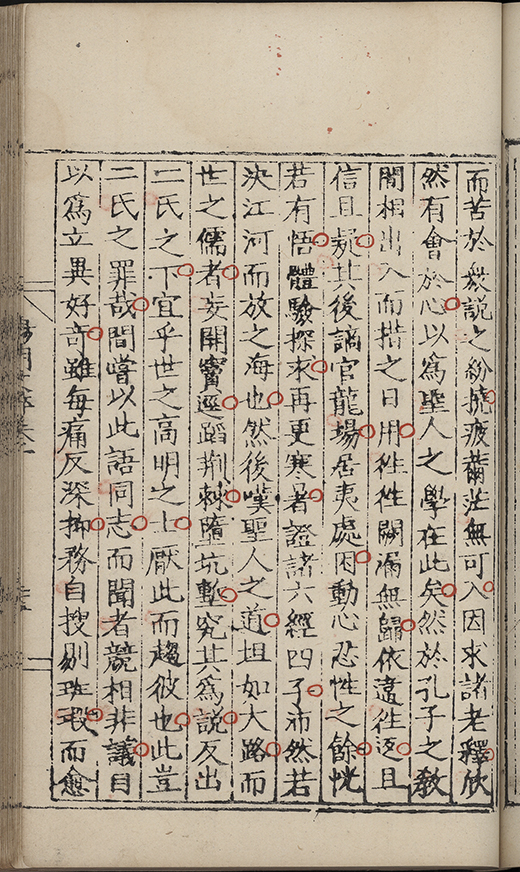 而苦於衆說之紛撓疲薾茫無可入因求諸老釋欣
然有會於心以爲聖人之學在此矣然於孔子之教
間相出入而措之日用徃徃闕漏無歸依違徃返且
信且疑其後謫官龍塲居夷處困動心忍性之餘恍
若有悟體驗探求再更寒暑證諸六經四子沛然若
決江河而放之海也然後嘆聖人之道坦如大路而
世之儒者妄開竇逕蹈荆棘墮坑塹究其爲說反出
二氏之下宜乎世之高明之士厭此而趨彼也此豈
二氏之罪哉間嘗以此語同志而聞者競相非議目
以爲立異好奇雖每痛反深抑務自搜剔斑瑕而愈